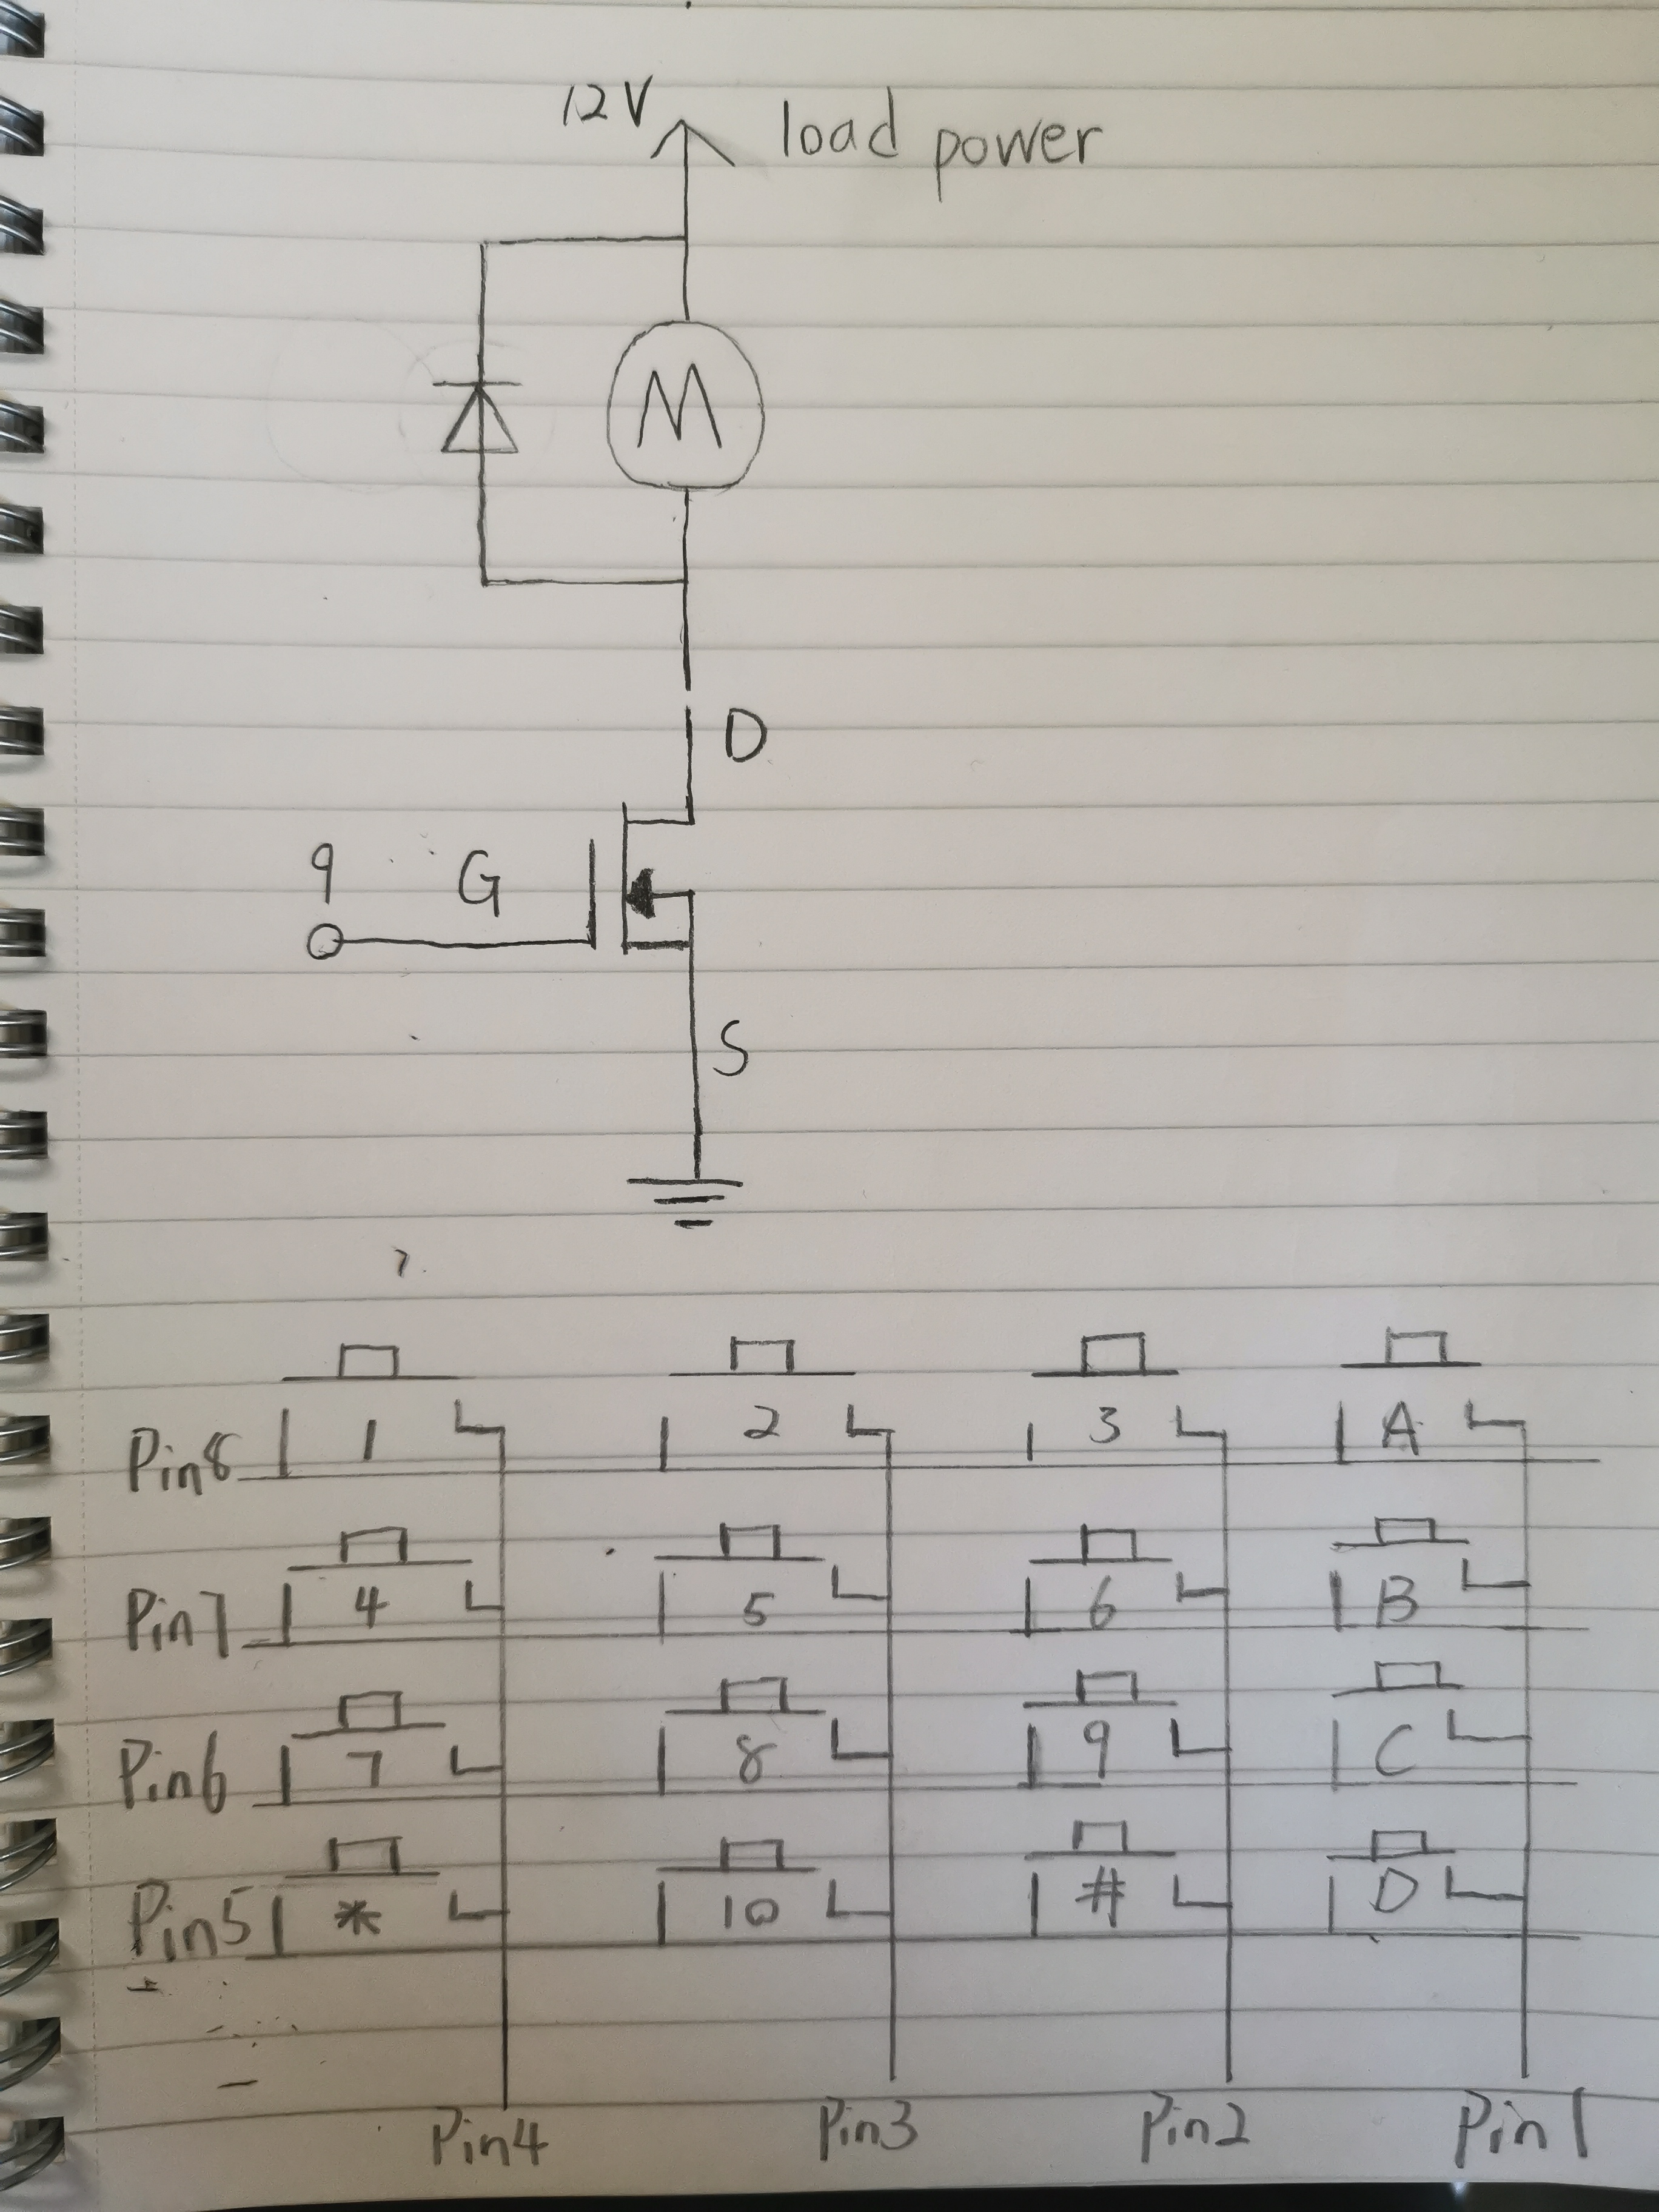 12V load power
M
D
9 G
S
1 2 3 A
Pin8
4 5 6 B
Pin7
7 8 9 C
Pin6
* 10 # D
Pin5
Pin4 Pin3 Pin2 Pin1